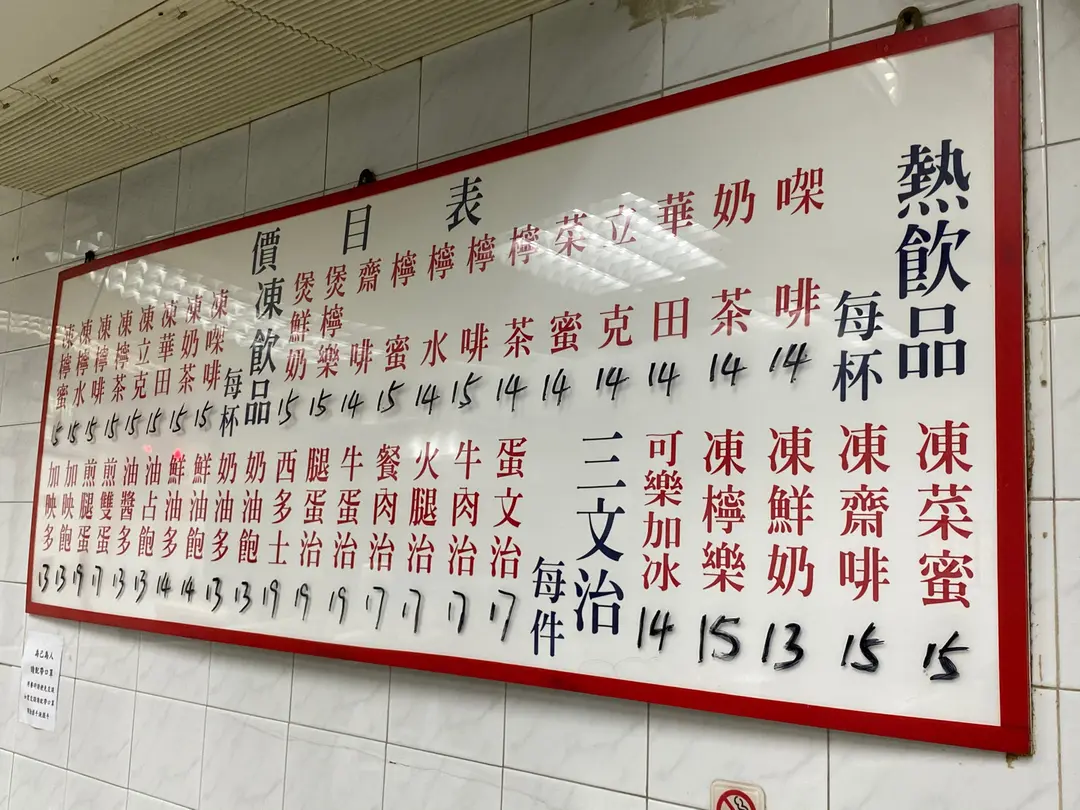 價目表
熱飲品 每杯
㗎啡 14
奶茶 14
華田 14
立克 14
菜蜜 14
檸茶 14
檸啡 15
檸水 14
檸蜜 15
齋啡 14
煲檸樂 15
煲鮮奶 15
凍飲品 每杯
凍㗎啡 15
凍奶茶 15
凍華田 15
凍立克 15
凍檸茶 15
凍檸啡 15
凍檸水 15
凍檸蜜 15
凍菜蜜 15
凍齋啡 15
凍鮮奶 13
凍檸樂 15
可樂加冰 14
三文治 每件
蛋文治 17
牛肉治 17
火腿治 17
餐肉治 17
牛蛋治 19
腿蛋治 19
西多士 19
奶油飽 13
奶油多 13
鮮油飽 14
鮮油多 14
油占飽 13
油醬多 13
煎雙蛋 17
煎腿蛋 19
加映飽 13
加映多 13
為己為人
請配帶口罩